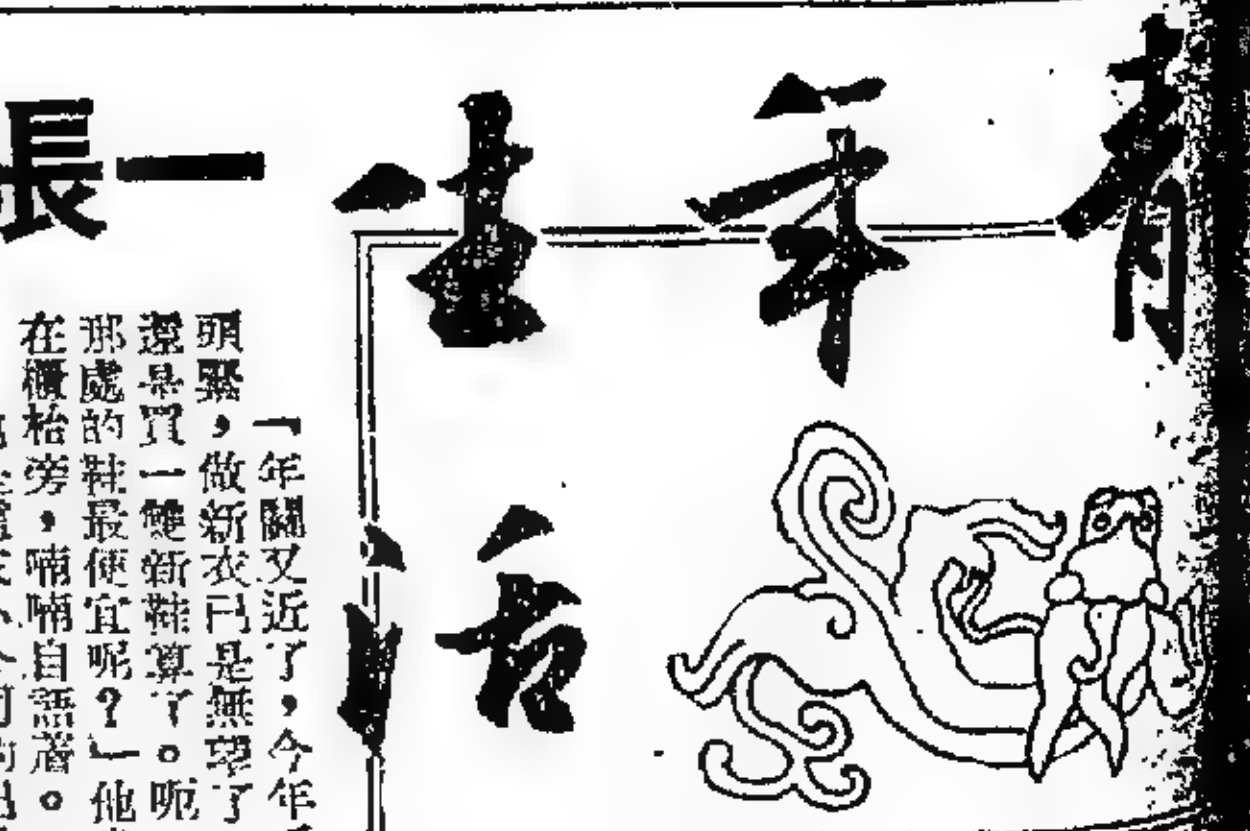 青年生活
一長
「年關又近了，今年
頭緊，做新衣已是無望了
還是買一雙新鞋算了。呃
那處的鞋最便宜呢？」他
在櫃枱旁，喃喃自語着。